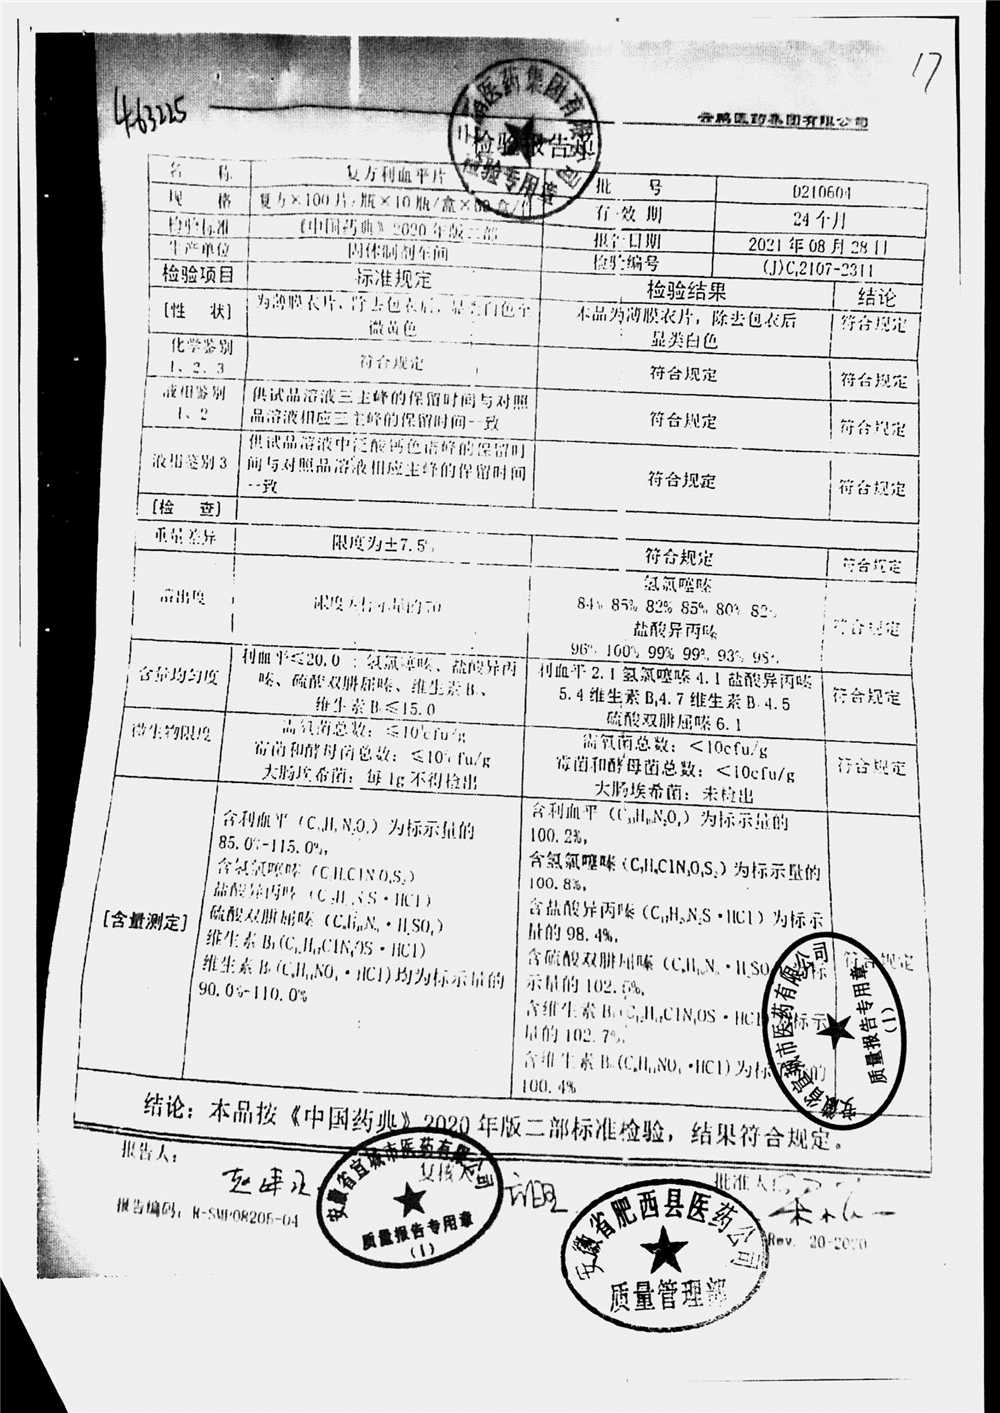 17
463225
云鹏医药集团有限公司
检验报告单
检验专用章
名 称 复方利血平片 批 号 D210604
规 格 复方×100片/瓶×10瓶/盒× 有效期 24个月
检验标准 《中国药典》2020年版二部 报告日期 2021年08月28日
生产单位 固体制剂车间 检验编号 (J)C,2107-2311
检验项目 标准规定 检验结果 结论
[性 状] 为薄膜衣片，除去包衣后，显类白色至 本品为薄膜衣片，除去包衣后 符合规定
微黄色 显类白色
化学鉴别 符合规定 符合规定 符合规定
1、2、3
液相鉴别 供试品溶液三主峰的保留时间与对照 符合规定 符合规定
1、2 品溶液相应三主峰的保留时间一致
供试品溶液中泛酸钙色谱峰的保留时
液相鉴别3 间与对照品溶液相应主峰的保留时间 符合规定 符合规定
一致
[检 查]
重量差异 限度为±7.5% 符合规定 符合规定
氢氯噻嗪
溶出度 限度为标示量的70 84% 85% 82% 85% 80% 82% 符合规定
盐酸异丙嗪
96% 100% 99% 99% 93% 98%
利血平≤20.0；氢氯噻嗪、盐酸异丙 利血平2.1 氢氯噻嗪4.1 盐酸异丙嗪
含量均匀度 嗪、硫酸双肼屈嗪、维生素B₁、 5.4 维生素B₁4.7 维生素B₆4.5 符合规定
维生素B₆≤15.0 硫酸双肼屈嗪6.1
微生物限度 需氧菌总数：≤10³cfu/g 需氧菌总数：<10cfu/g
霉菌和酵母菌总数：≤10²cfu/g 霉菌和酵母菌总数：<10cfu/g 符合规定
大肠埃希菌：每1g不得检出 大肠埃希菌：未检出
[含量测定]
含利血平 为标示量的
85.0%-115.0%，
含氢氯噻嗪
盐酸异丙嗪
硫酸双肼屈嗪
维生素B₁
维生素B₆ 均为标示量的
90.0%-110.0%
含利血平 为标示量的
100.2%，
含氢氯噻嗪 为标示量的
100.8%，
含盐酸异丙嗪 为标示
量的98.4%，
含硫酸双肼屈嗪 标
示量的102.5%，
含维生素B₁ 标示
量的102.7%，
含维生素B₆ 为标 的
100.4%
符合规定
安徽省宣城市医药有限公司
质量报告专用章
(1)
结论：本品按《中国药典》2020年版二部标准检验，结果符合规定。
报告人： 复核人 批准人：
报告编码：R-SMP0820E-04
Rev. 20-2020
安徽省宣城市医药有限公司
质量报告专用章
(1)
安徽省肥西县医药公司
质量管理部